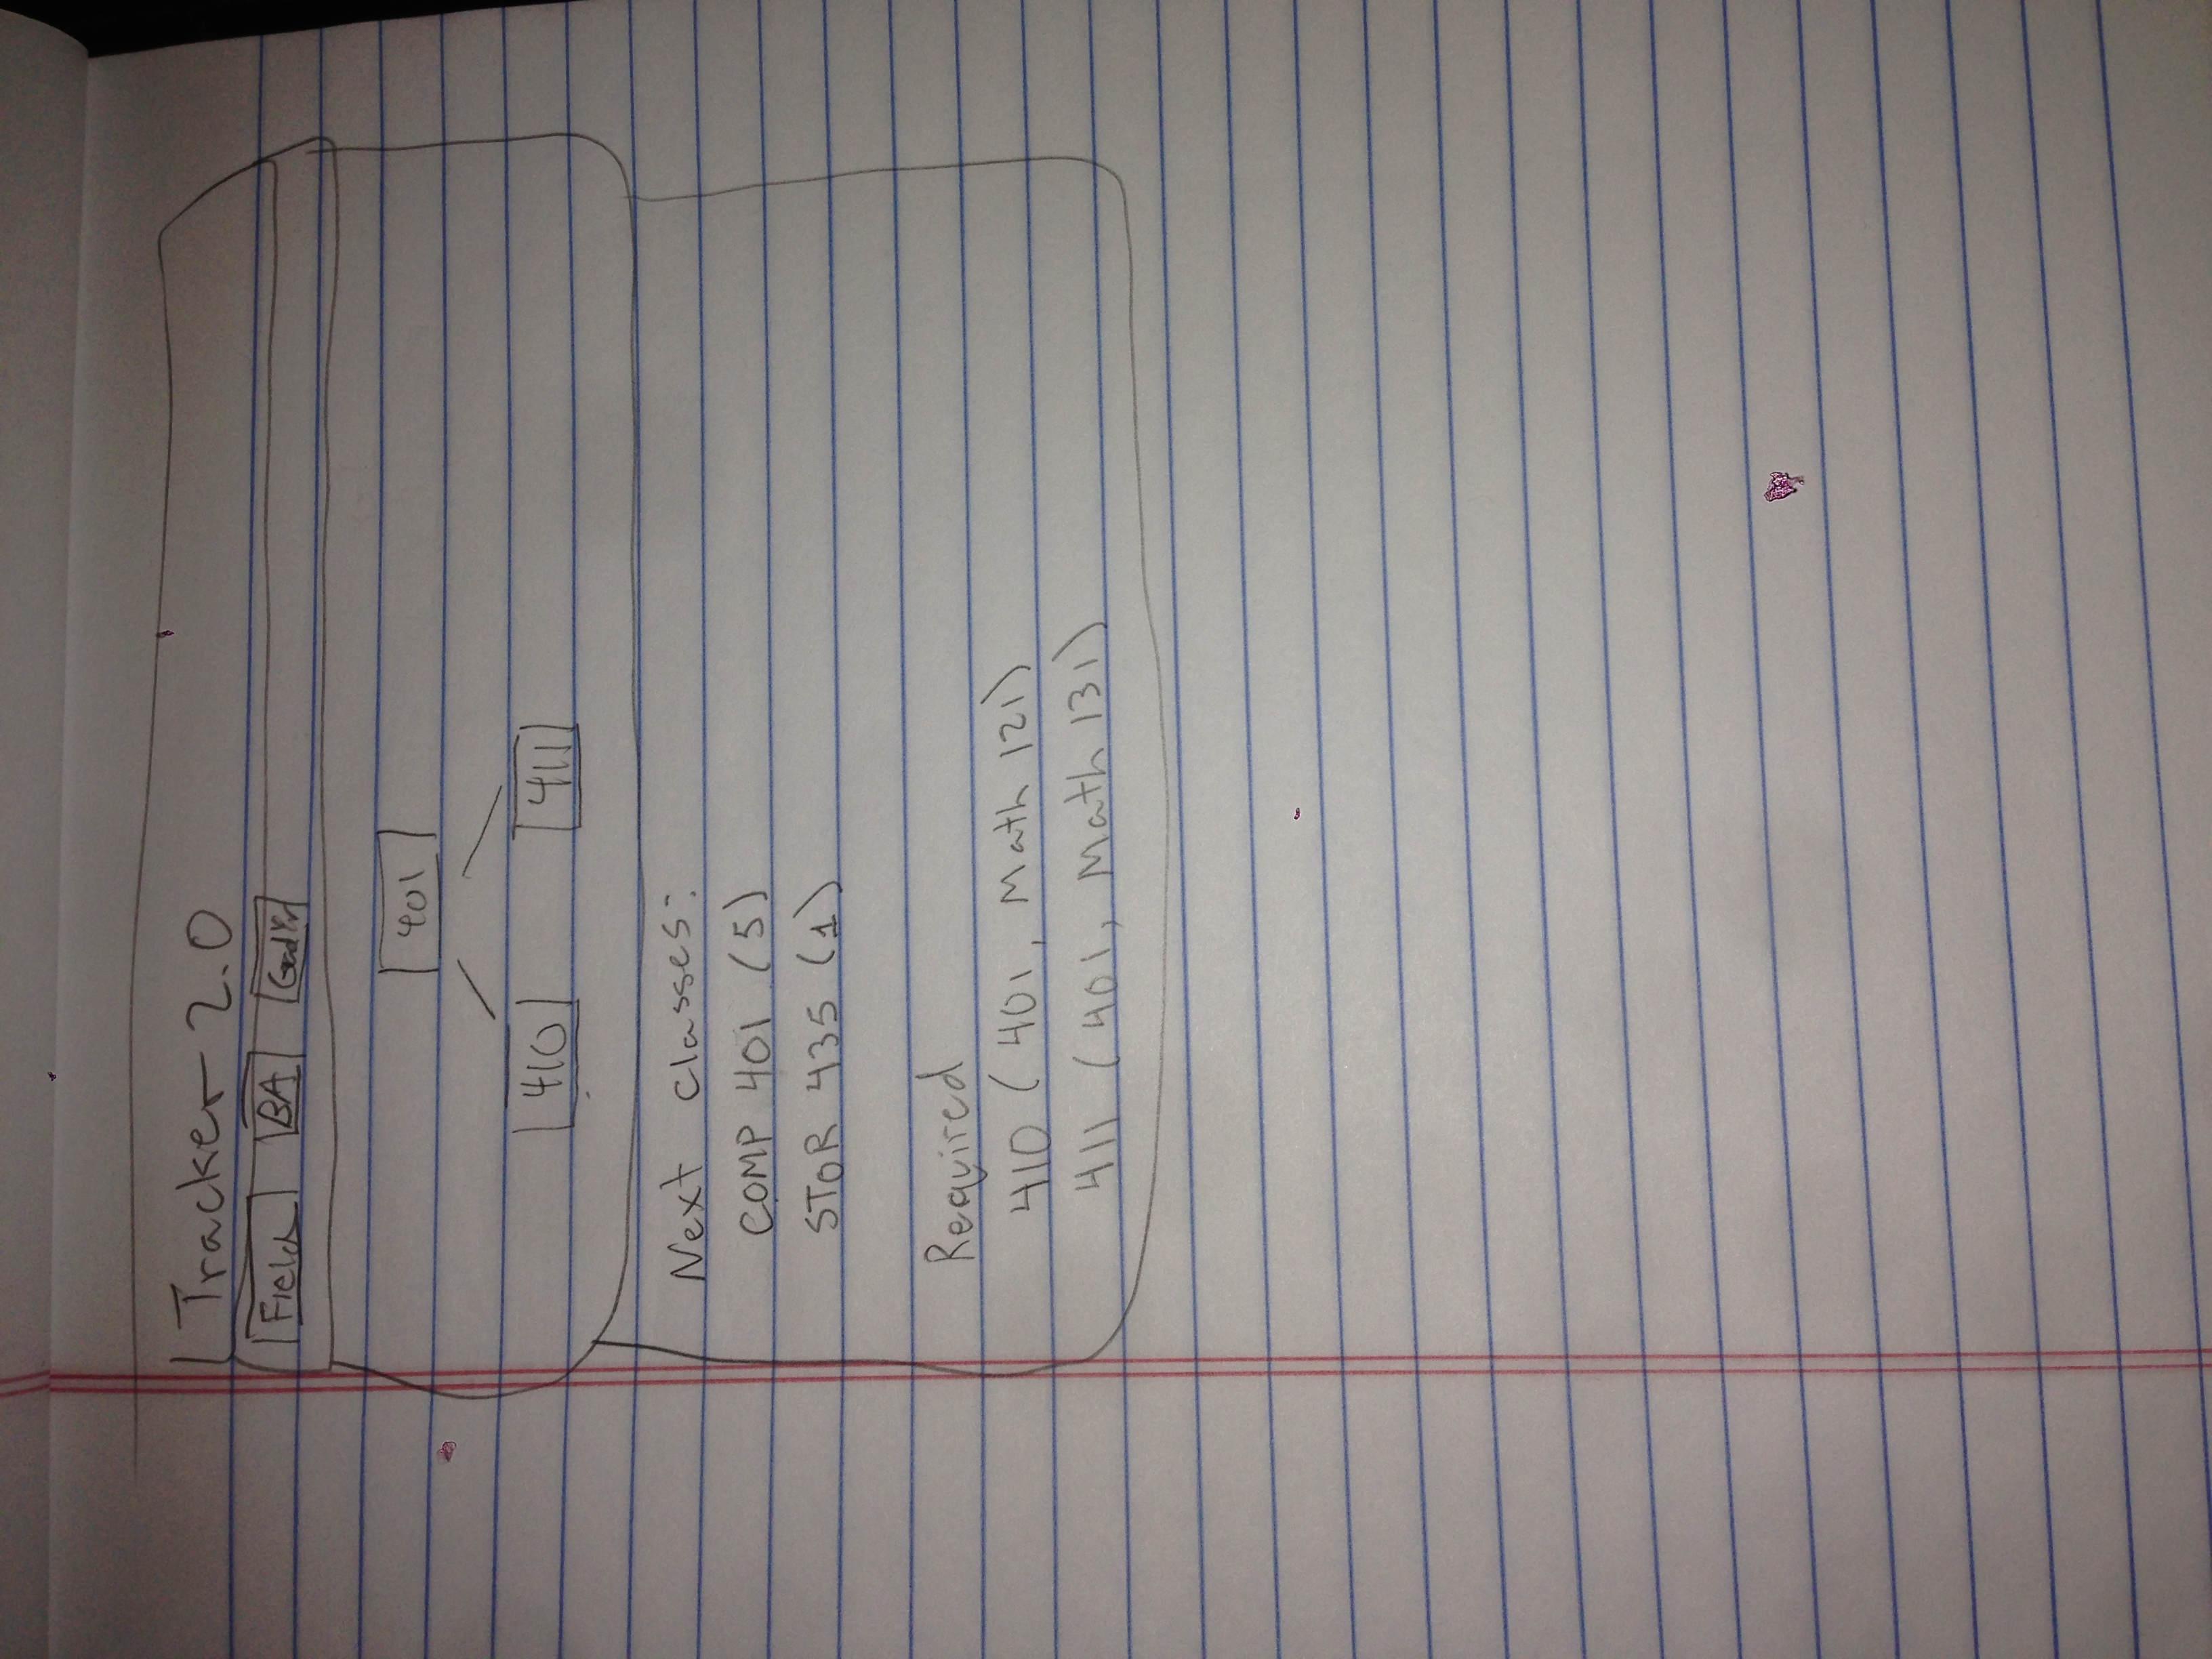 Tracker 2.0
Field BA GradYr
401
410 411
Next classes:
COMP 401 (5)
STOR 435 (1)
Required
410 (401, Math 121)
411 (401, Math 131)